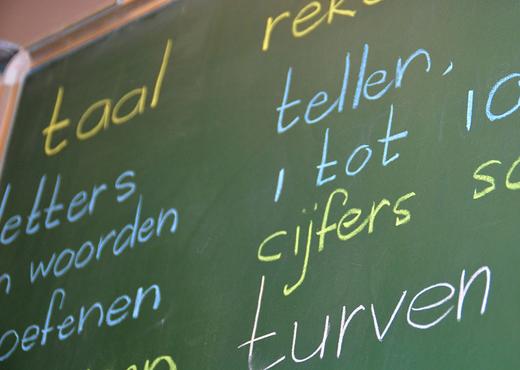 taal
letters
n woorden
oefenen
reke
tellen,
1 tot 10
cijfers sc
turven